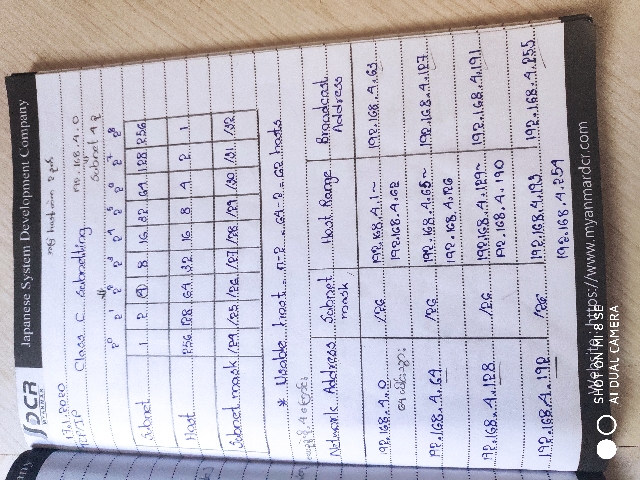 DCR
MYANMAR
Japanese System Development Company
17.1.2020
TCP/IP
Class C Subnetting
192.168.4.0
Subnet 4 ခု
2⁰ 2¹ 2² 2³ 2⁴ 2⁵ 2⁶ 2⁷ 2⁸
Subnet 1 2 4 8 16 32 64 128 256
Host 256 128 64 32 16 8 4 2 1
Subnet mask /24 /25 /26 /27 /28 /29 /30 /31 /32
* Usable host = n-2 = 64-2 = 62 hosts
Network Address Subnet mask Host Range Broadcast Address
192.168.4.0 /26 192.168.4.1~ 192.168.4.63
192.168.4.62
192.168.4.64 /26 192.168.4.65~ 192.168.4.127
192.168.4.126
192.168.4.128 /26 192.168.4.129~ 192.168.4.191
192.168.4.190
192.168.4.192 /26 192.168.4.193 192.168.4.255
192.168.4.254
Website : https://www.myanmardcr.com
SHOT ON MI 8 SE
AI DUAL CAMERA